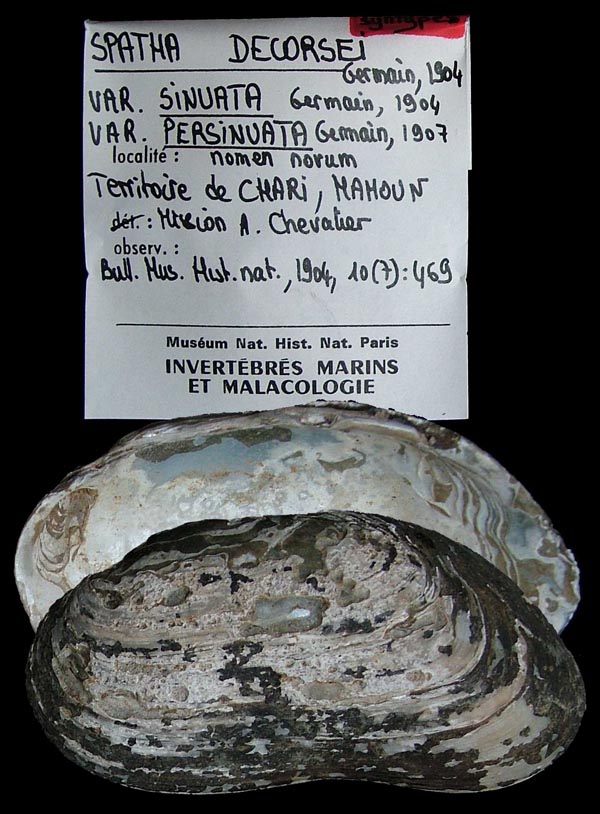 syntypes
SPATHA DECORSEI
Germain, 1904
VAR. SINUATA Germain, 1904
VAR. PERSINUATA Germain, 1907
localité : nomen novum
Territoire de CHARI, MAMOUN
dét. : Mission A. Chevalier
observ. :
Bull. Mus. Hist. nat., 1904, 10(7): 469
Muséum Nat. Hist. Nat. Paris
INVERTÉBRÉS MARINS
ET MALACOLOGIE